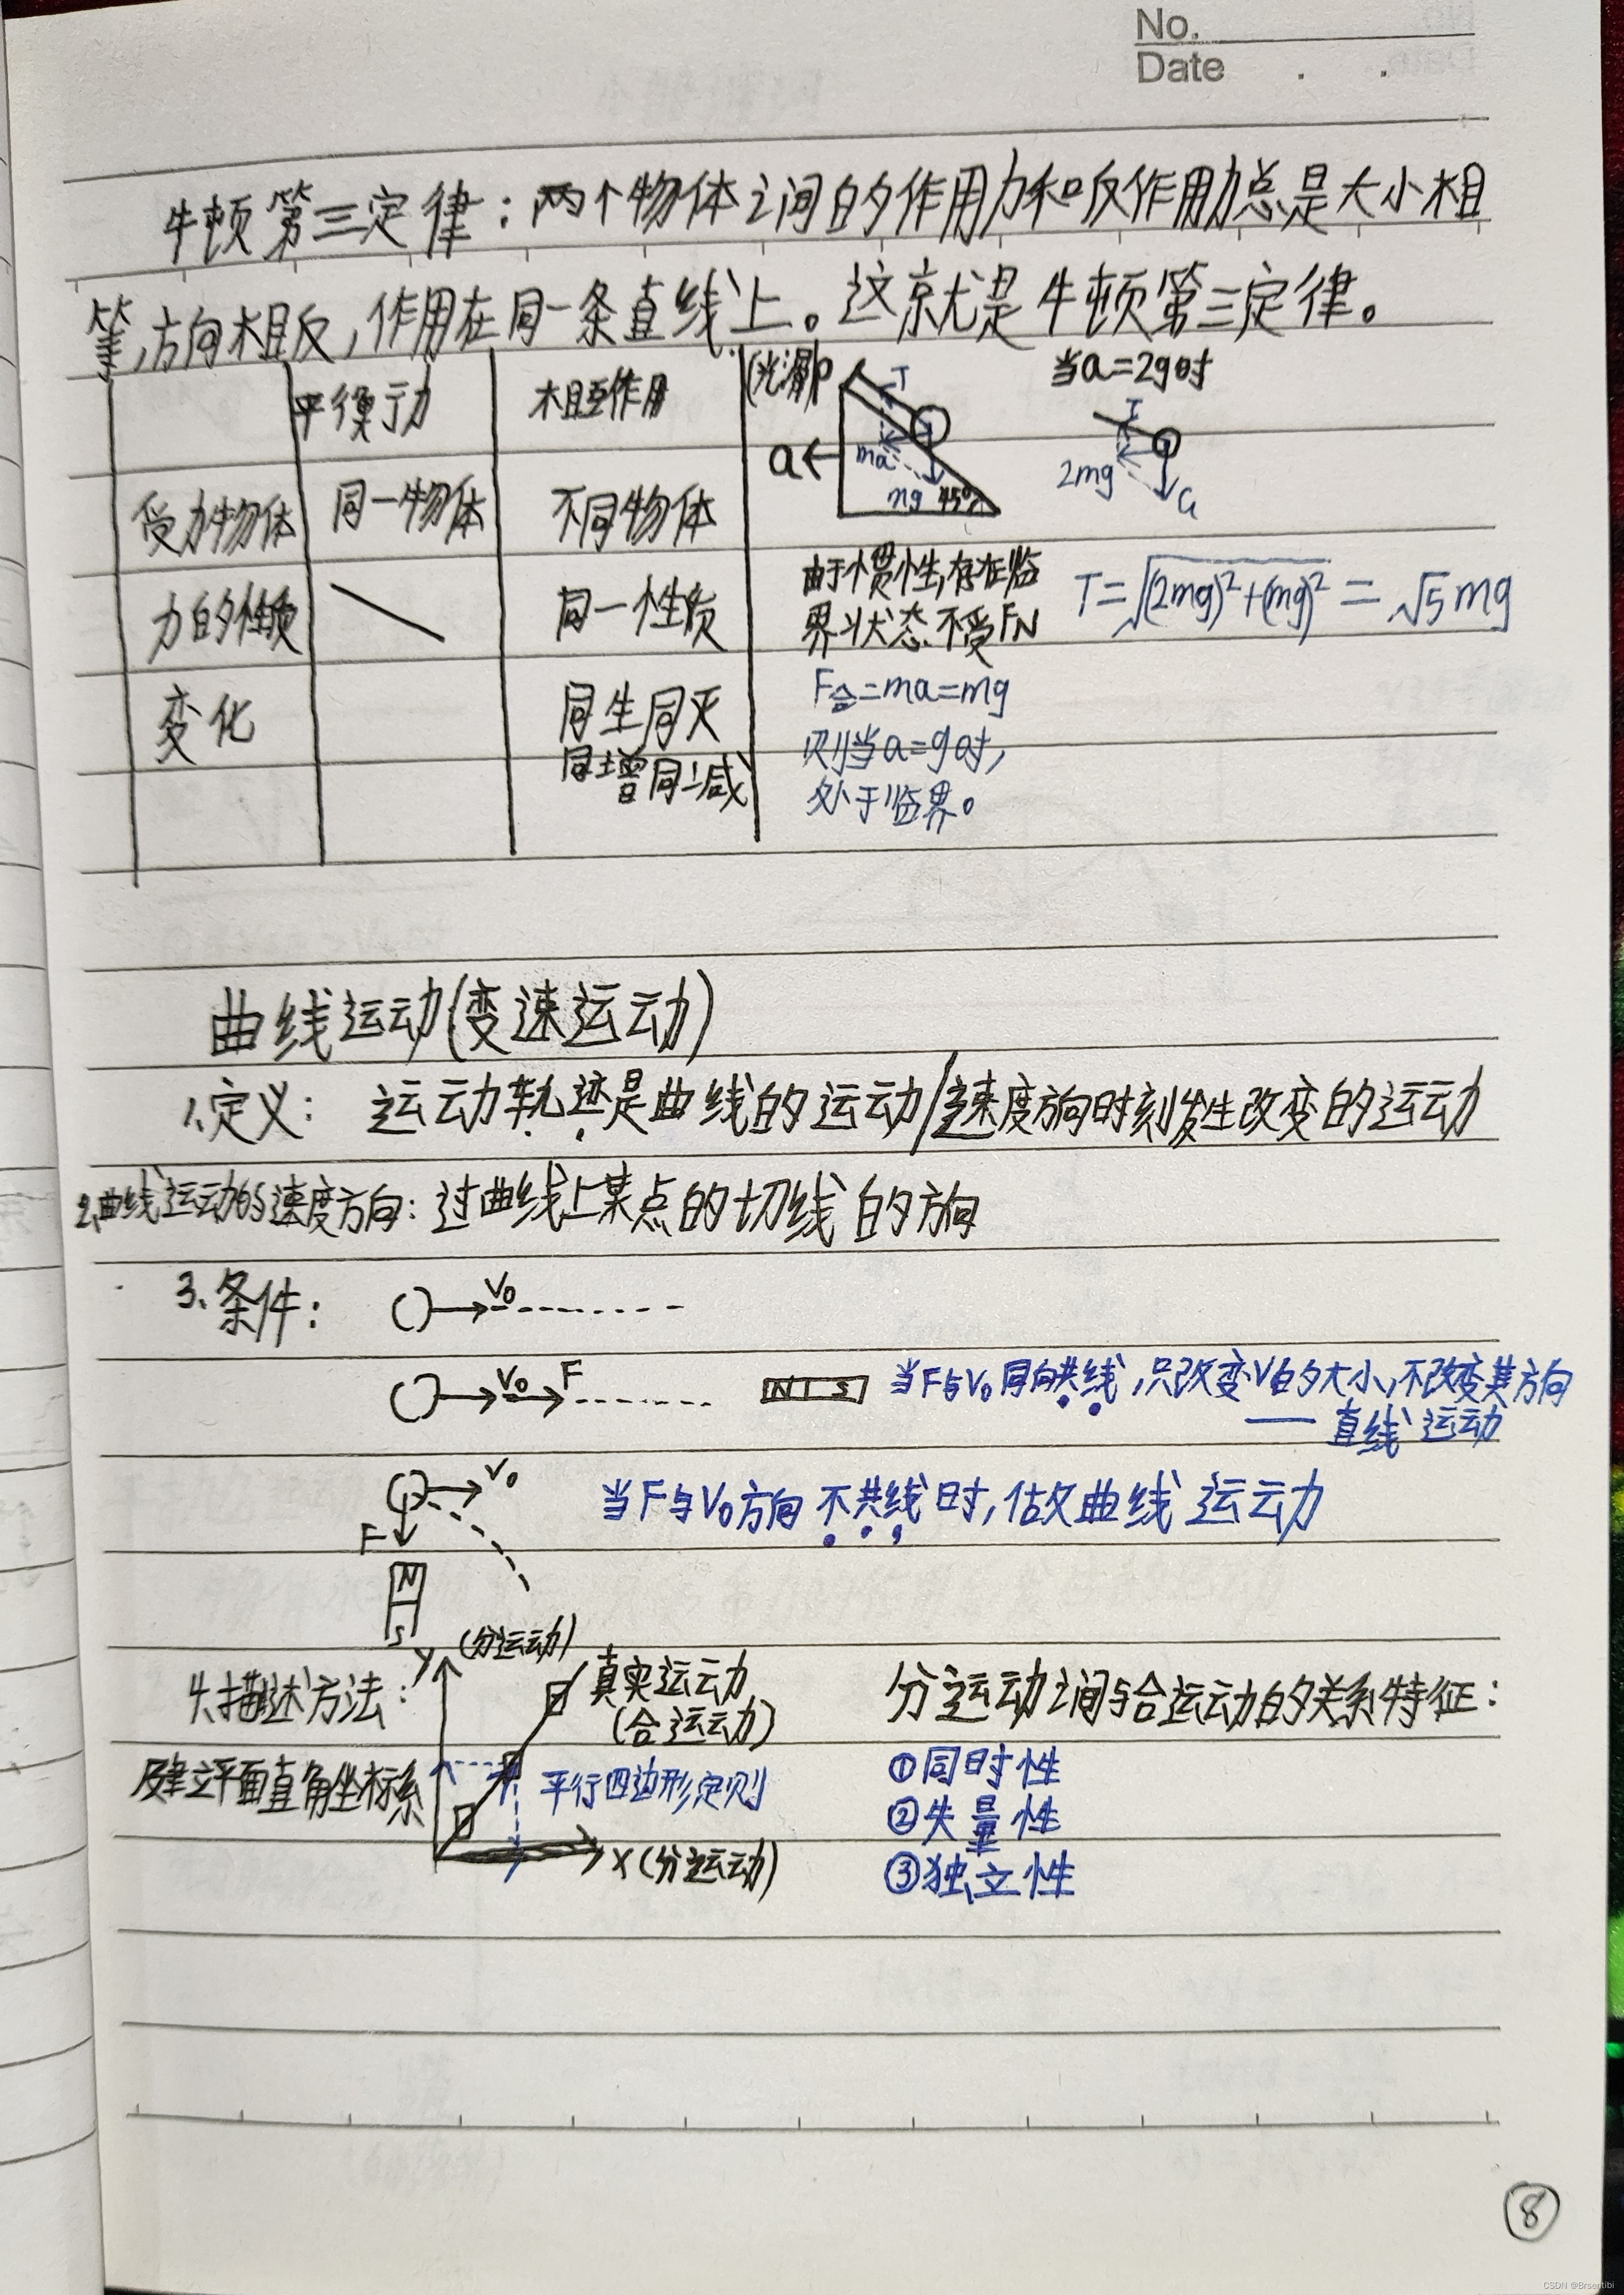 No.
Date
牛顿第三定律：两个物体之间的作用力和反作用力总是大小相
等,方向相反,作用在同一条直线上。这就是牛顿第三定律。
平衡力 相互作用
受力物体 同一物体 不同物体
力的性质 同一性质
变化 同生同灭
同增同减
(光滑) P T
a
ma
mg 45°
当a=2g时
T
2mg
G
由于惯性,存在临
界状态不受FN
F合=ma=mg
则当a=g时,
处于临界。
T=√(2mg)²+(mg)² = √5mg
曲线运动(变速运动)
1.定义： 运动轨迹是曲线的运动/速度方向时刻发生改变的运动
2.曲线运动的速度方向：过曲线上某点的切线的方向
3.条件： V₀
V₀ F N S 当F与V₀同向共线,只改变V的大小,不改变其方向
——直线运动
V₀ 当F与V₀方向不共线时,做曲线运动
F
N
S
4.描述方法：
建立平面直角坐标系
Y (分运动)
真实运动
(合运动)
平行四边形定则
X(分运动)
分运动之间与合运动的关系特征：
①同时性
②矢量性
③独立性
⑧
CSDN @Brsentibi